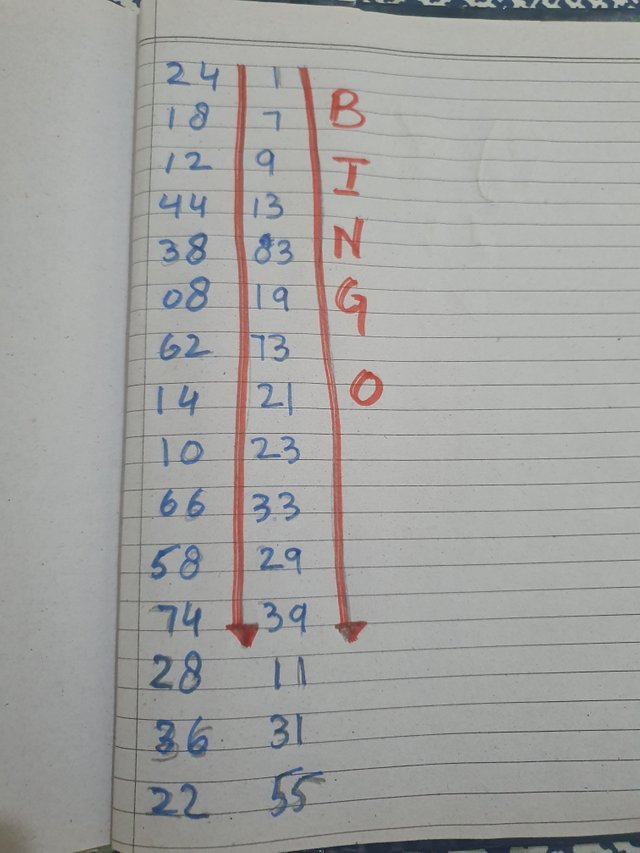 24 1
18 7 B
12 9 I
44 13
38 83 N
08 19 G
62 73
14 21 O
10 23
66 33
58 29
74 39
28 11
36 31
22 55